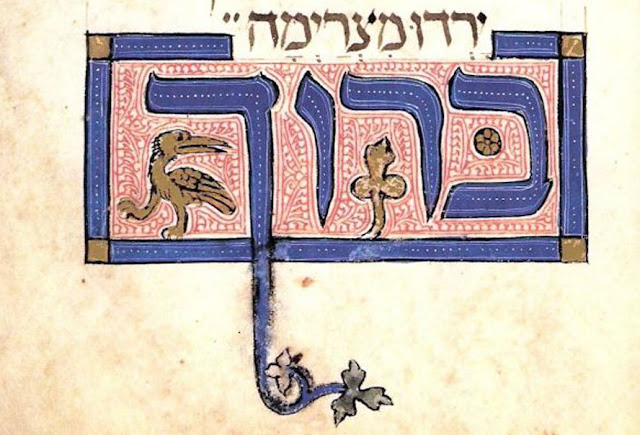 ירדו מצרימה״
ברוך